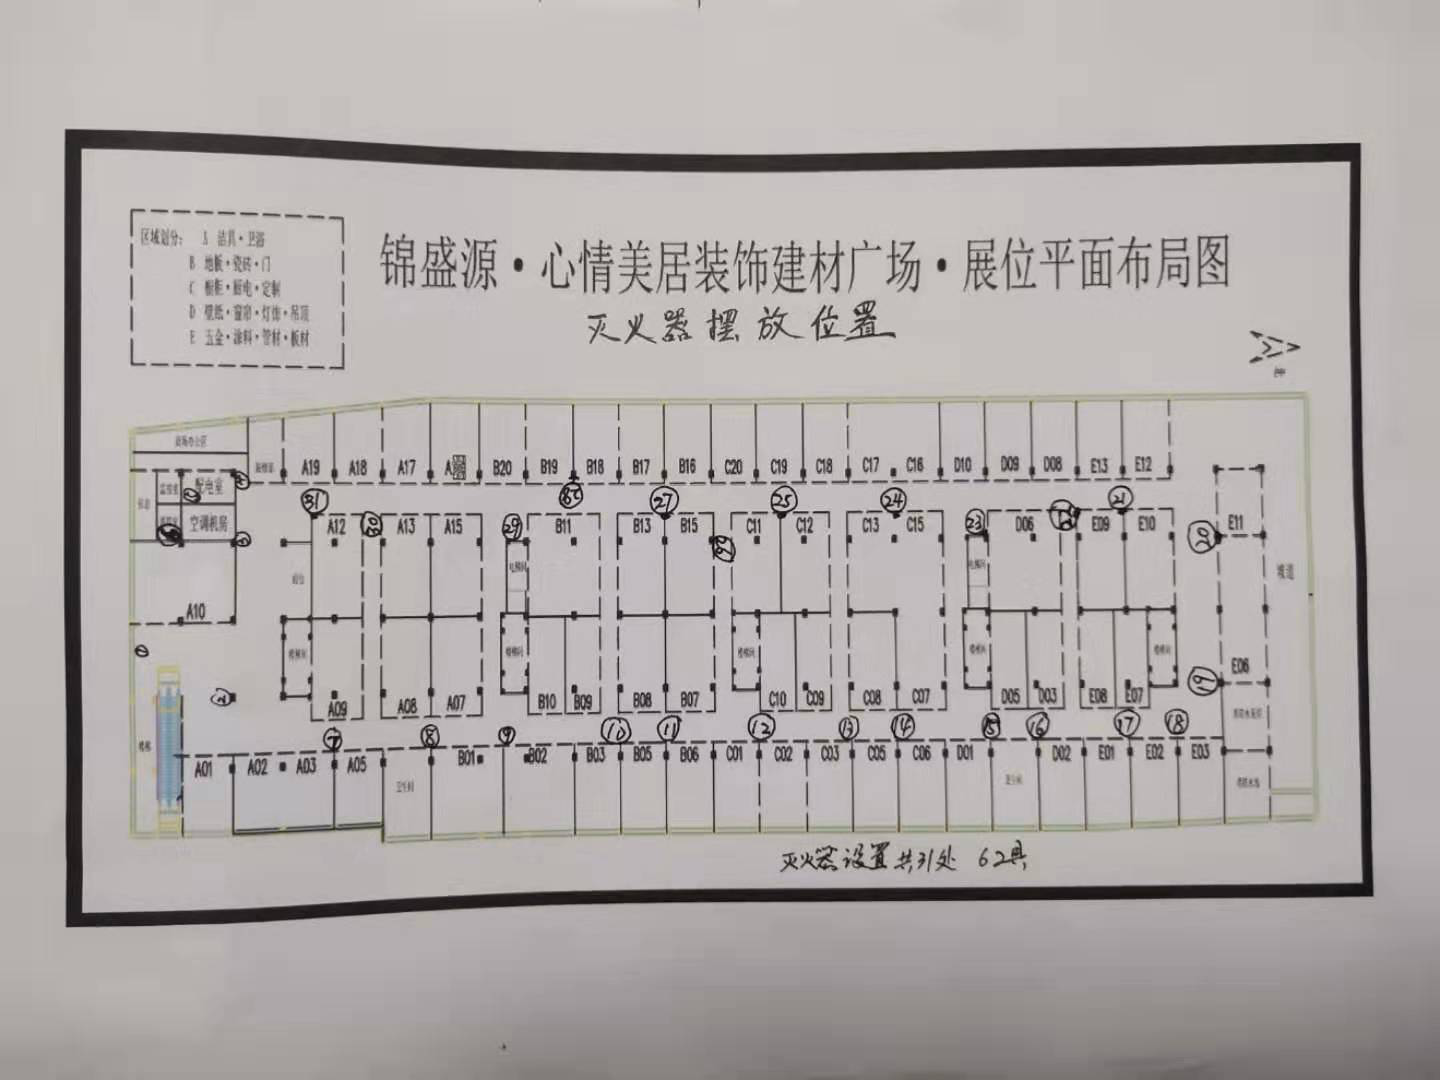 区域划分： A 洁具·卫浴
B 地板·瓷砖·门
C 橱柜·厨电·定制
D 壁纸·窗帘·灯饰·吊顶
E 五金·涂料·管材·板材
锦盛源·心情美居装饰建材广场·展位平面布局图
灭火器摆放位置
商场办公区
配电室
空调机房
A19 A18 A17 B20 B19 B18 B17 B16 C20 C19 C18 C17 C16 D10 D09 D08 E13 E12
31 27 25 24 21
A12 30 A13 A15 29 B11 B13 B15 C11 C12 C13 C15 23 D06 E09 E10 E11
26 20
电梯间 电梯间
坡道
A10
楼梯间 楼梯间 楼梯间 楼梯间 楼梯间
1
2
E06
19
A09 A08 A07 B10 B09 B08 B07 C10 C09 C08 C07 D05 D03 E08 E07
7 8 9 10 11 12 13 14 15 16 17 18
楼梯
A01 A02 A03 A05 B01 B02 B03 B05 B06 C01 C02 C03 C05 C06 D01 D02 E01 E02 E03
卫生间 卫生间
消防水池
灭火器设置共31处 62具